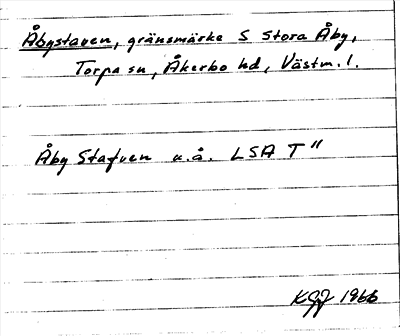 Åbystaven, gränsmärke S Stora Åby,
Torpa sn, Åkerbo hd, Västm. l.
Åby Stafven u.å. LSA T"
KGJ 1966